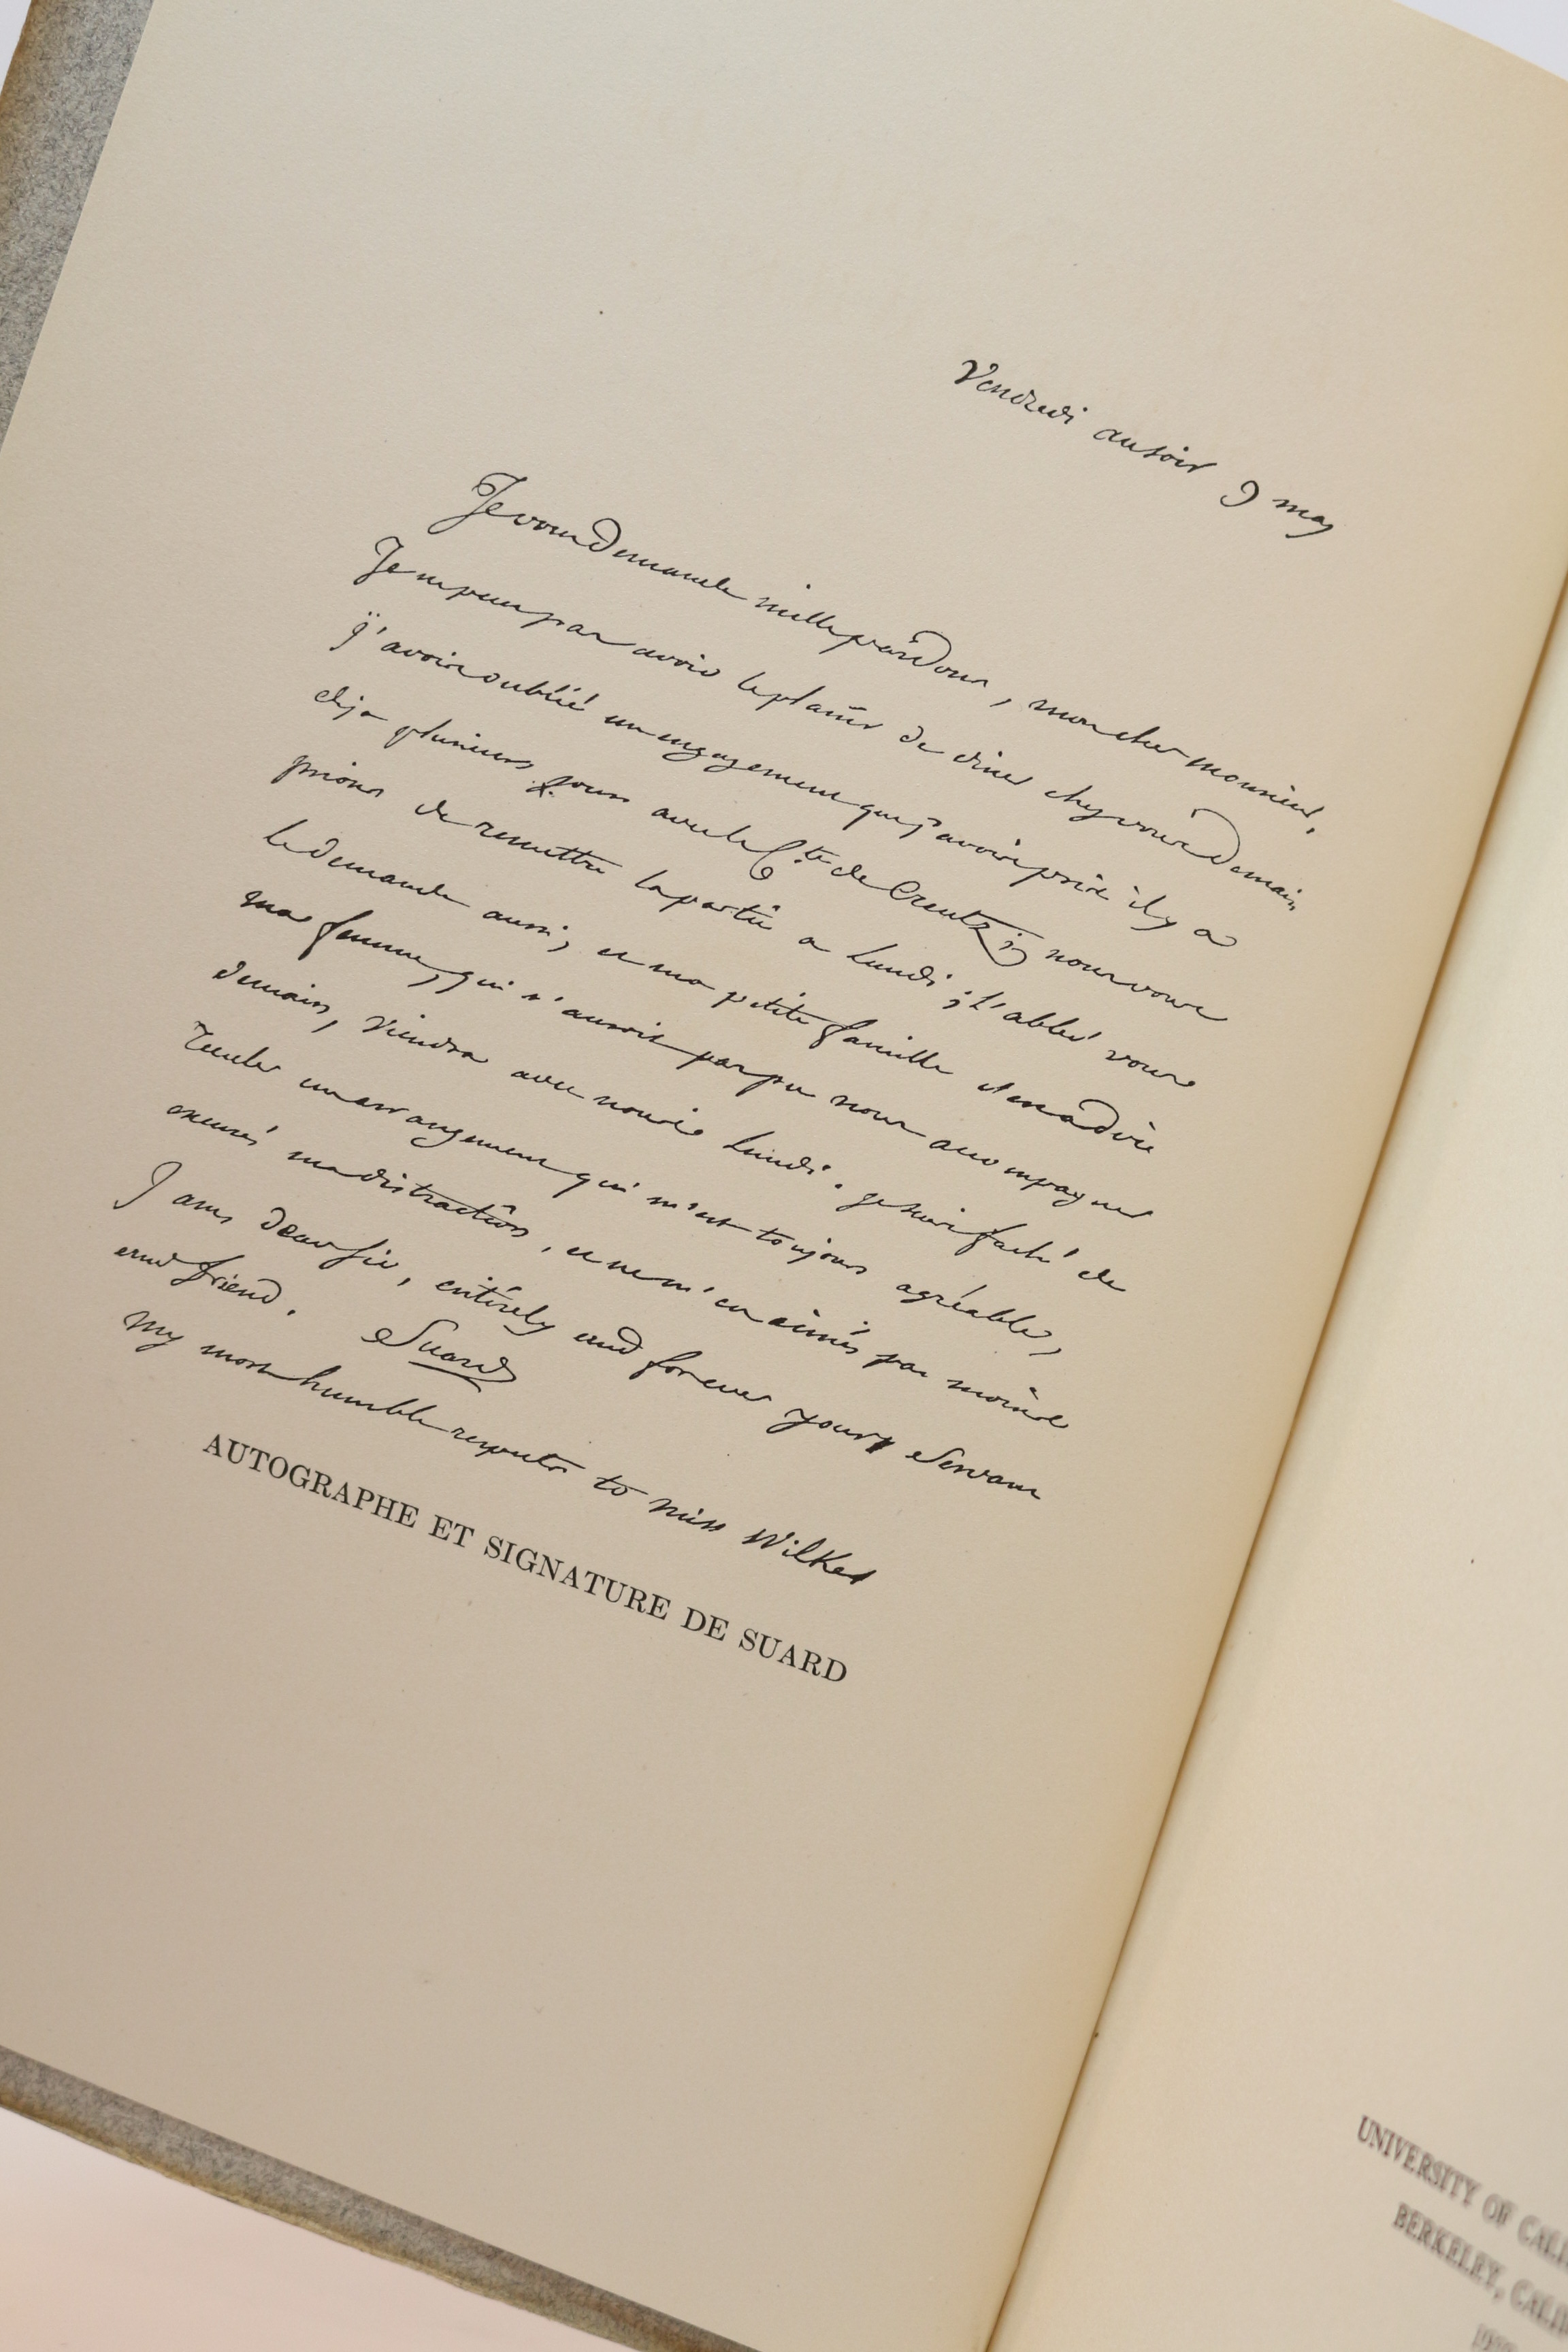 Vendredi au soir 9 may
Je vous demande mille pardons, mon cher monsieur,
Je ne peux pas avoir le plaisir de diner chez vous demain
j'avois oublié un engagement que j'avois pris il y a
deja plusieurs jours avec le Cte de Creutz; nous vous
prions de remettre la partie a lundi; l'abbé vous
le demande aussi, et ma petite famille
ma femme, qui n'auroit pas pu nous accompagner
demain, viendra avec nous lundi. je suis faché de
un arrangement qui m'est toujours agréable,
excusés ma distraction, et ne m'en aimés pas moins
I am, dear sir, entirely and for ever yours Servant
and friend. Suard
My most humble respects to miss Wilkes
AUTOGRAPHE ET SIGNATURE DE SUARD
UNIVERSITY OF CALI
BERKELEY, CALI